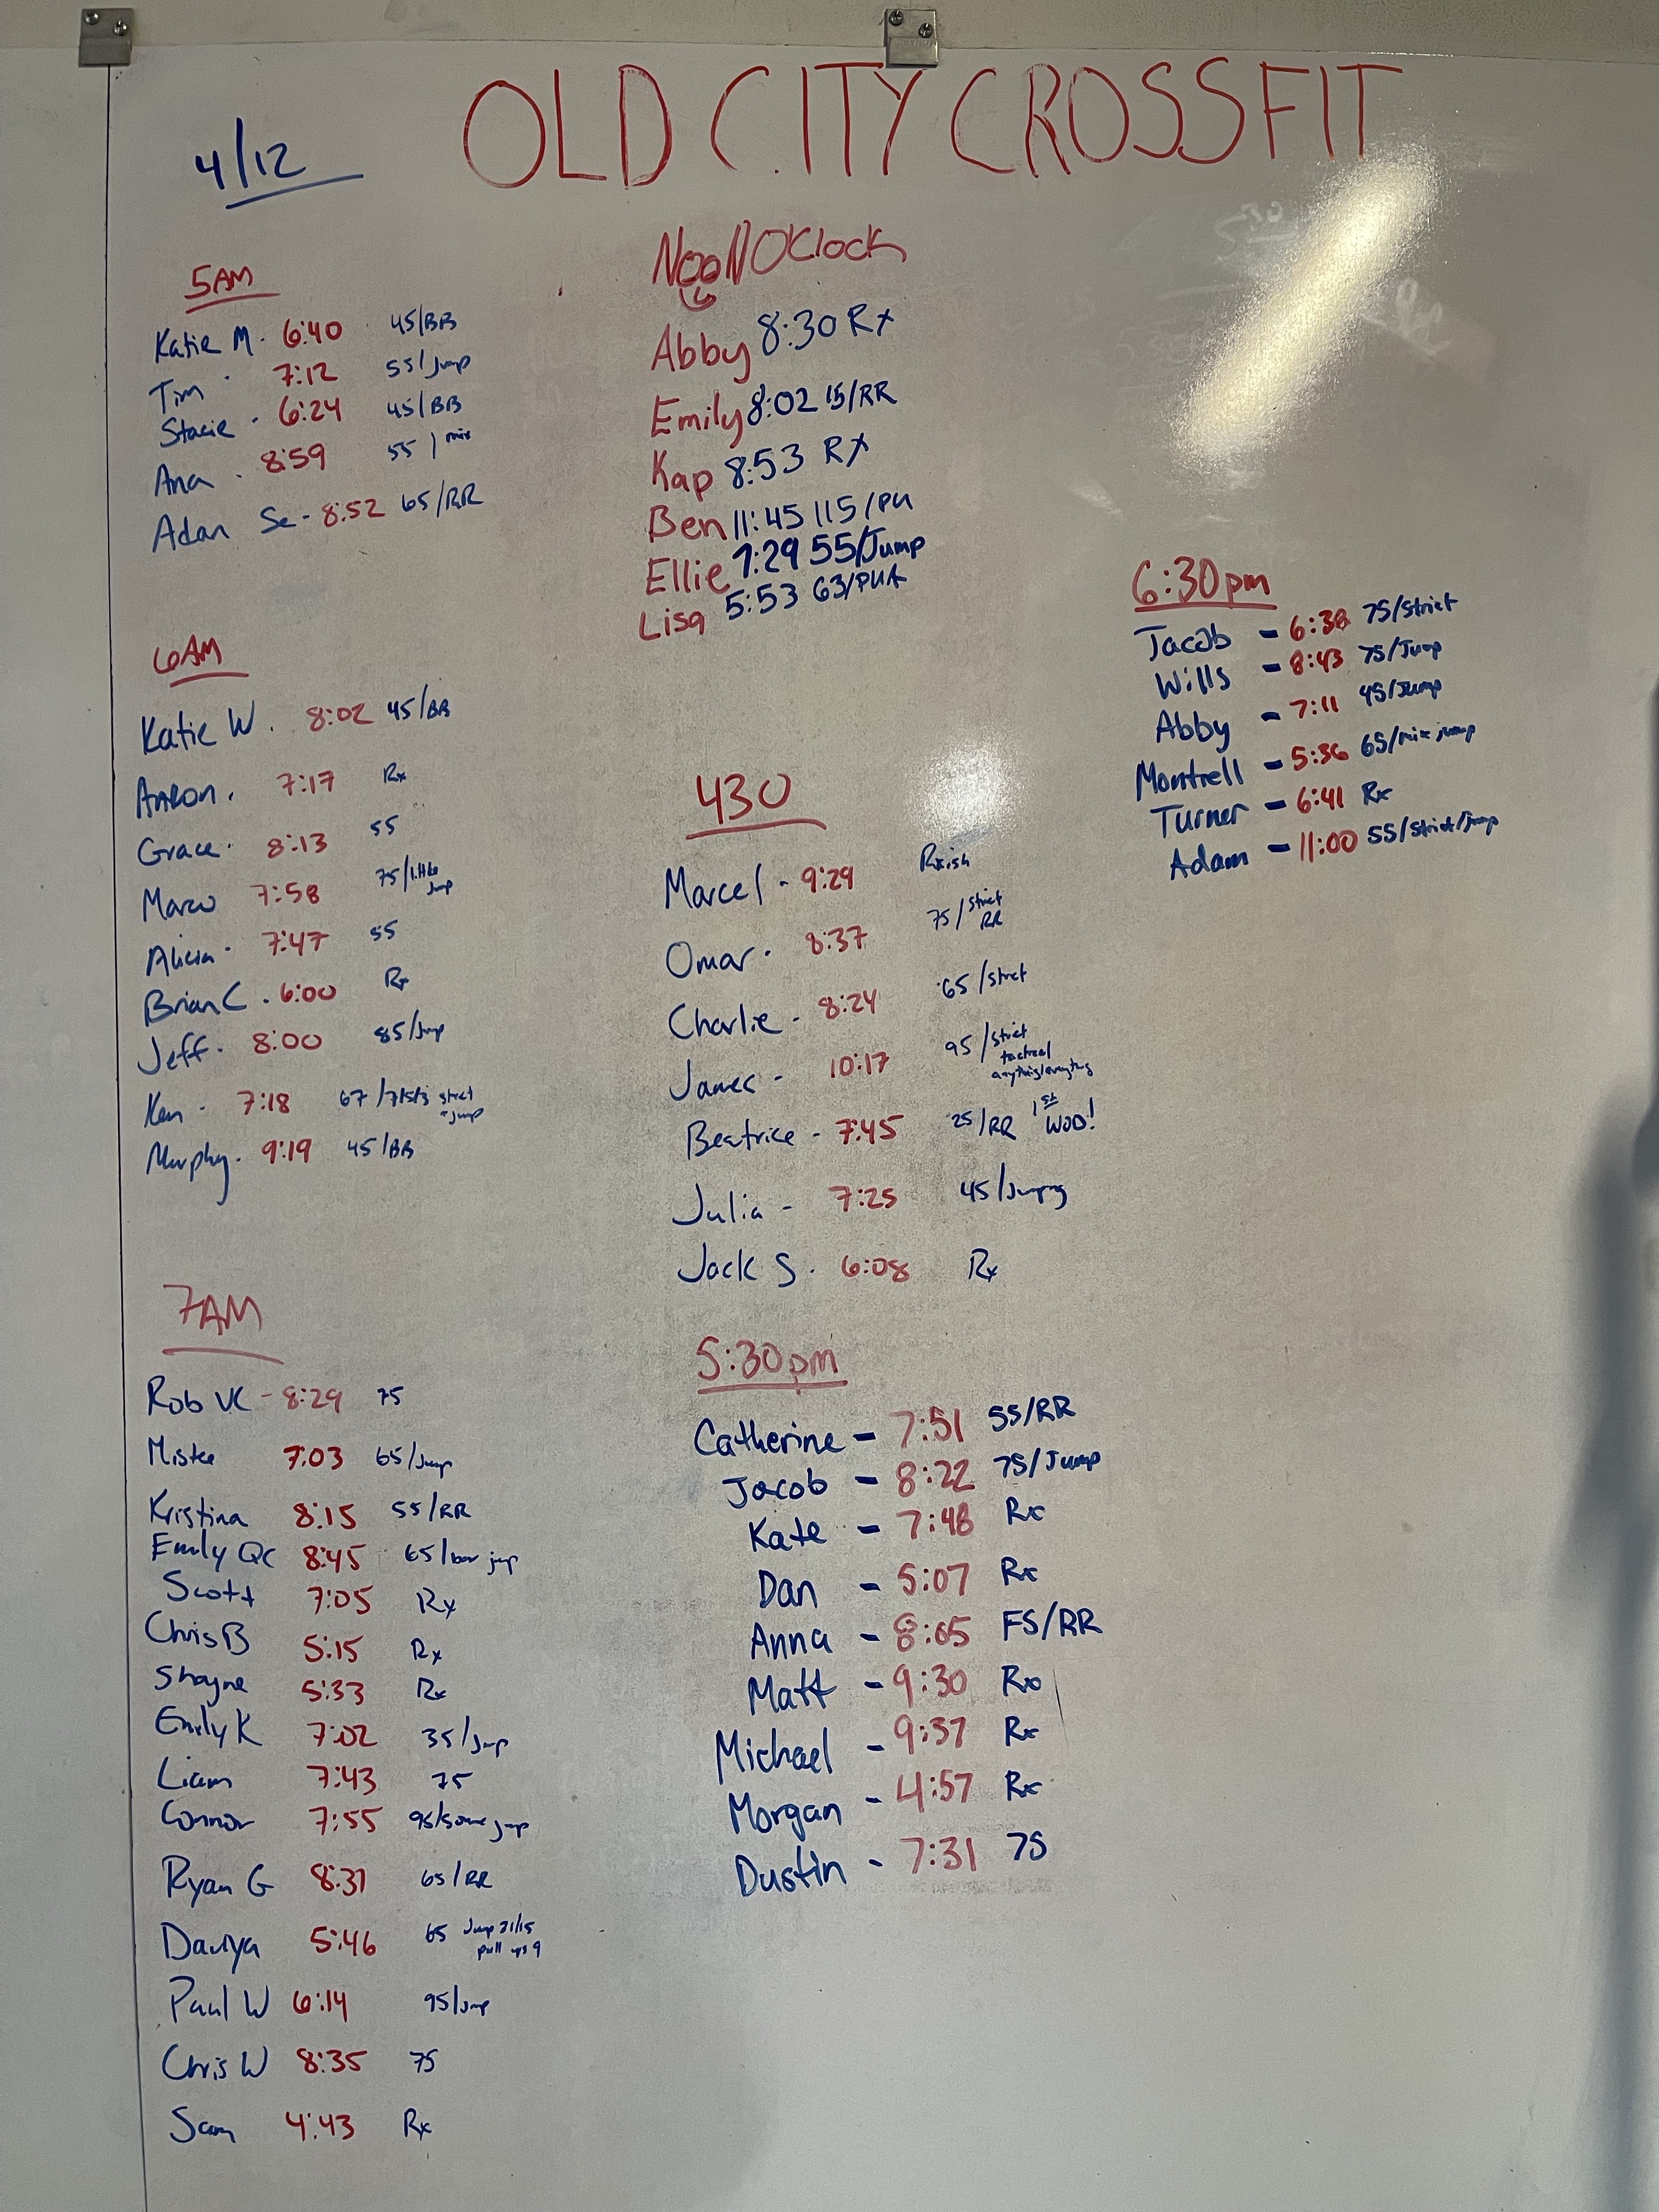 OLD CITY CROSSFIT
4/12
5AM
Katie M. 6:40 45/BB
Tim 7:12 55/Jump
Stacie - 6:24 45/BB
Ana - 8:59 55 / mix
Adan Se - 8:52 65/RR
6AM
Katie W. 8:02 45/BB
Aaron. 7:17 Rx
Grace. 8:13 55
Marco 7:58 75/little
jump
Alicia. 7:47 55
Brian C. 6:00 Rx
Jeff. 8:00 85/Jump
Ken - 7:18 67 strict
+ jump
Murphy. 9:19 45/BB
7AM
Rob VC - 8:29 75
Mistee 7:03 65/Jump
Kristina 8:15 55/RR
Emily QC 8:45 65/bar jump
Scott 7:05 Rx
Chris B 5:15 Rx
Shayne 5:33 Rx
Emily K 7:02 35/Jump
Liam 7:43 75
Connor 7:55 95/some jump
Ryan G 8:31 65/RR
Daviya 5:46 65 Jump 21/15
pull ups 9
Paul W 6:14 95/Jump
Chris W 8:35 75
Sam 4:43 Rx
NooN O'Clock
Abby 8:30 Rx
Emily 8:02 15/RR
Kap 8:53 Rx
Ben 11:45 115/PU
Ellie 7:29 55/Jump
Lisa 5:53 63/
430
Marcel - 9:29 Rxish
Omar. 8:37 75/strict
RR
Charlie - 8:24 65/strict
James - 10:17 95/strict
tactical
anything/everything
Beatrice - 7:45 25/RR 1st WOD!
Julia - 7:25 45/Jumping
Jack S. 6:08 Rx
5:30pm
Catherine - 7:51 55/RR
Jacob - 8:22 75/Jump
Kate - 7:48 Rx
Dan - 5:07 Rx
Anna - 8:05 FS/RR
Matt - 9:30 Rx
Michael - 9:37 Rx
Morgan - 4:57 Rx
Dustin - 7:31 75
6:30pm
Jacob - 6:38 75/Strict
Wills - 8:43 75/Jump
Abby - 7:11 45/Jump
Montrell - 5:36 65/mix jump
Turner - 6:41 Rx
Adam - 11:00 55/Strict/Jump